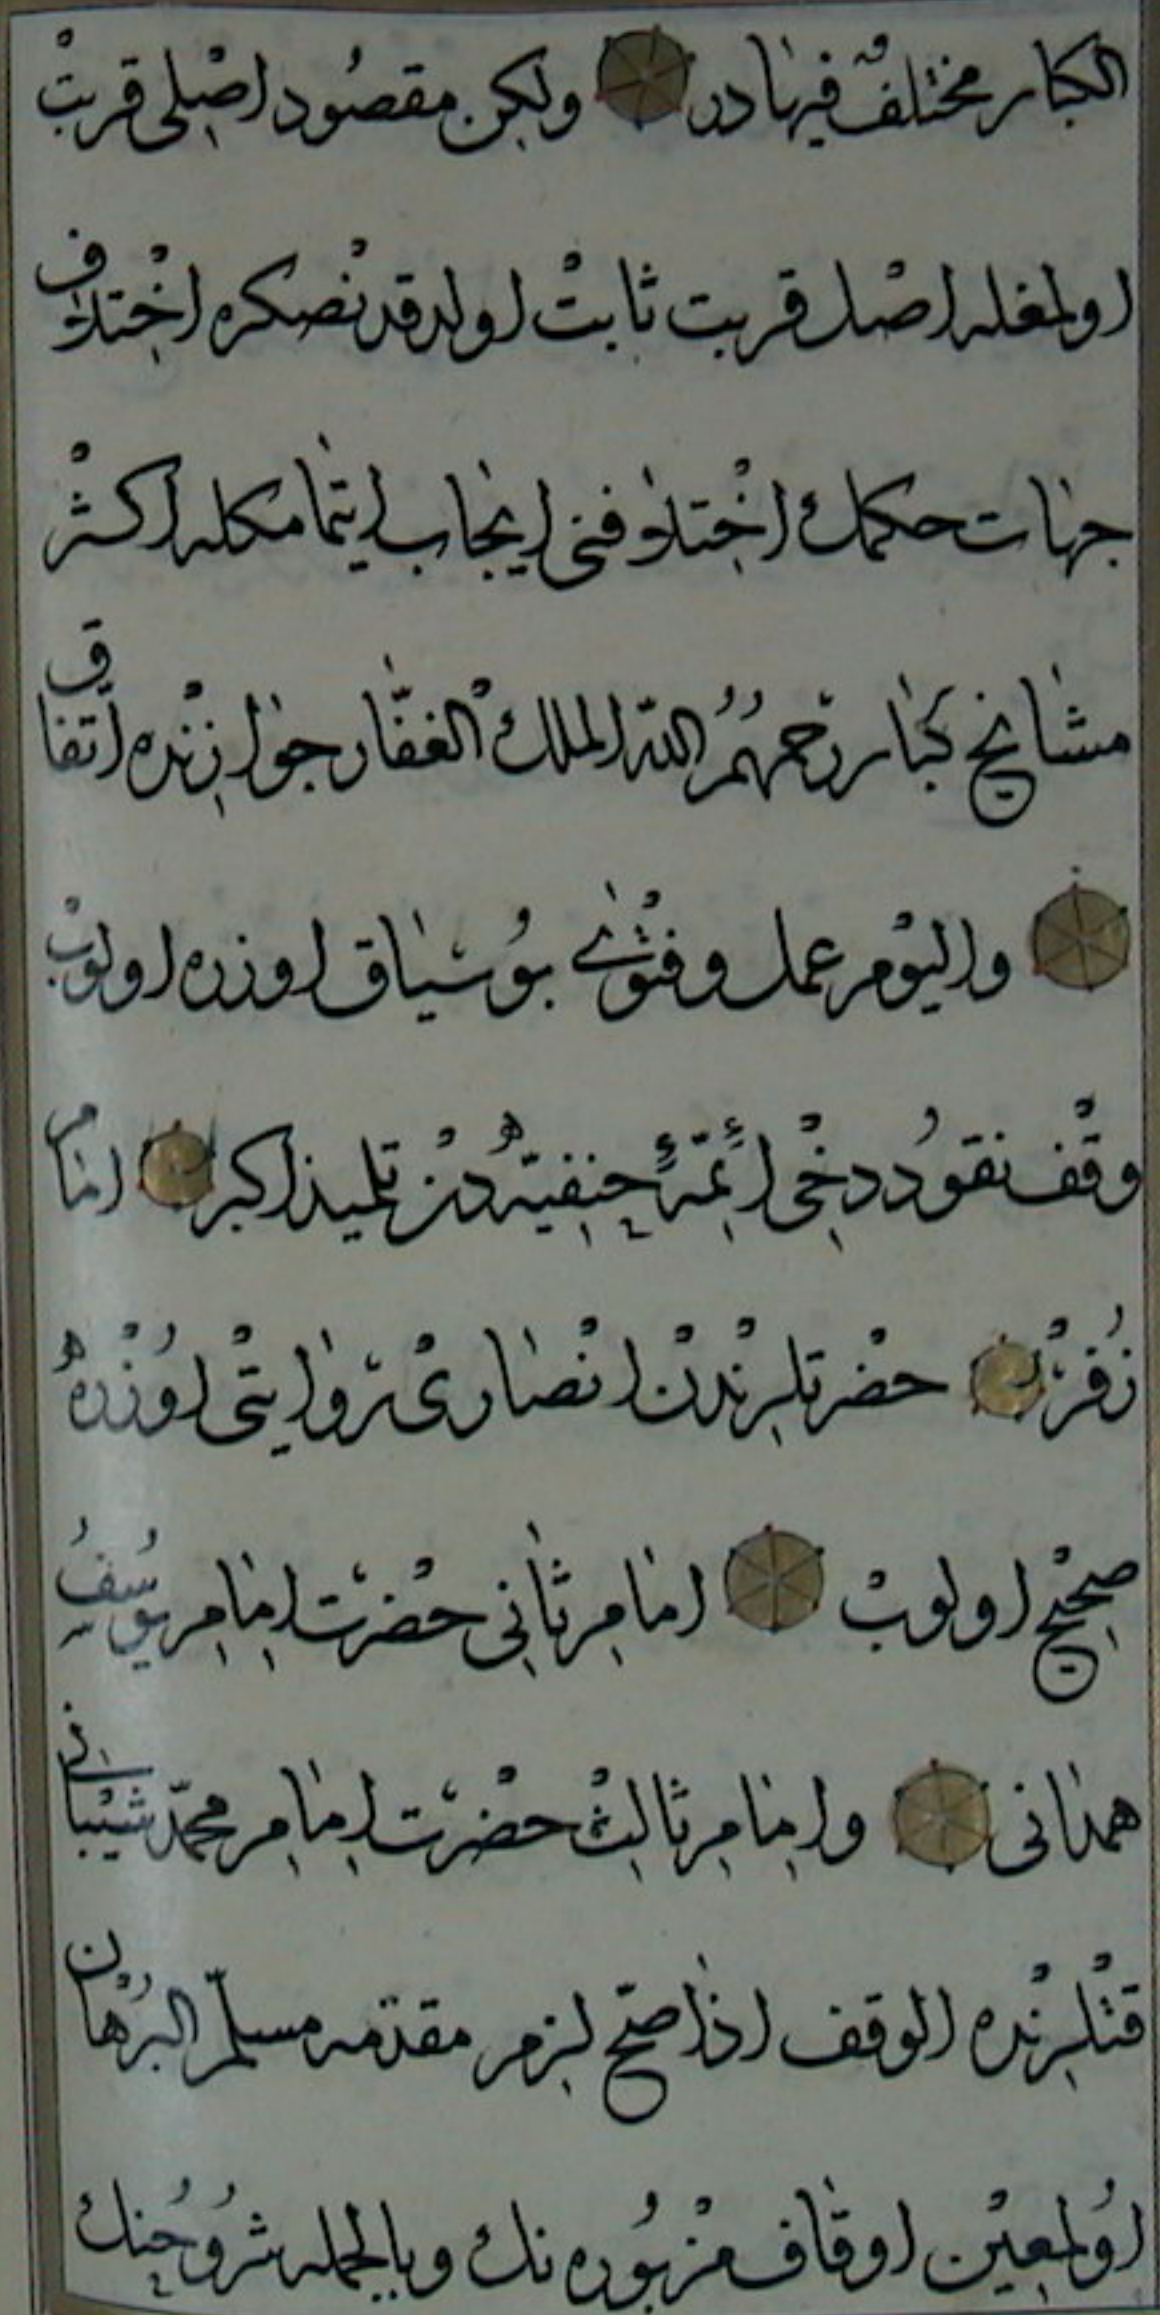 الكبار مختلف فيهادر ولكن مقصود اصلى قربت
اولمغله اصل قربت ثابت اولدقدنصكره اختلاف
جهات حكمك اختلافنى ايجاب ايتمامكله اكثر
مشايخ كبار رحمهم الله الملك الغفار جوازنده اتفاق
واليوم عمل وفتوى بو سياق اوزره اولوب
وقف نقود دخى ائمۀ حنفيه دن تلميذ اكبر امام
زفر حضرتلرندن انصارى روايتى اوزره
صحيح اولوب امام ثانى حضرت امام يوسف
همدانى وامام ثالث حضرت امام محمد شيبانى
قتلرنده الوقف اذا صح لزم مقدمه مسلم البرهان
اولمعين اوقاف مزبوره نك وبالجمله شروحنك